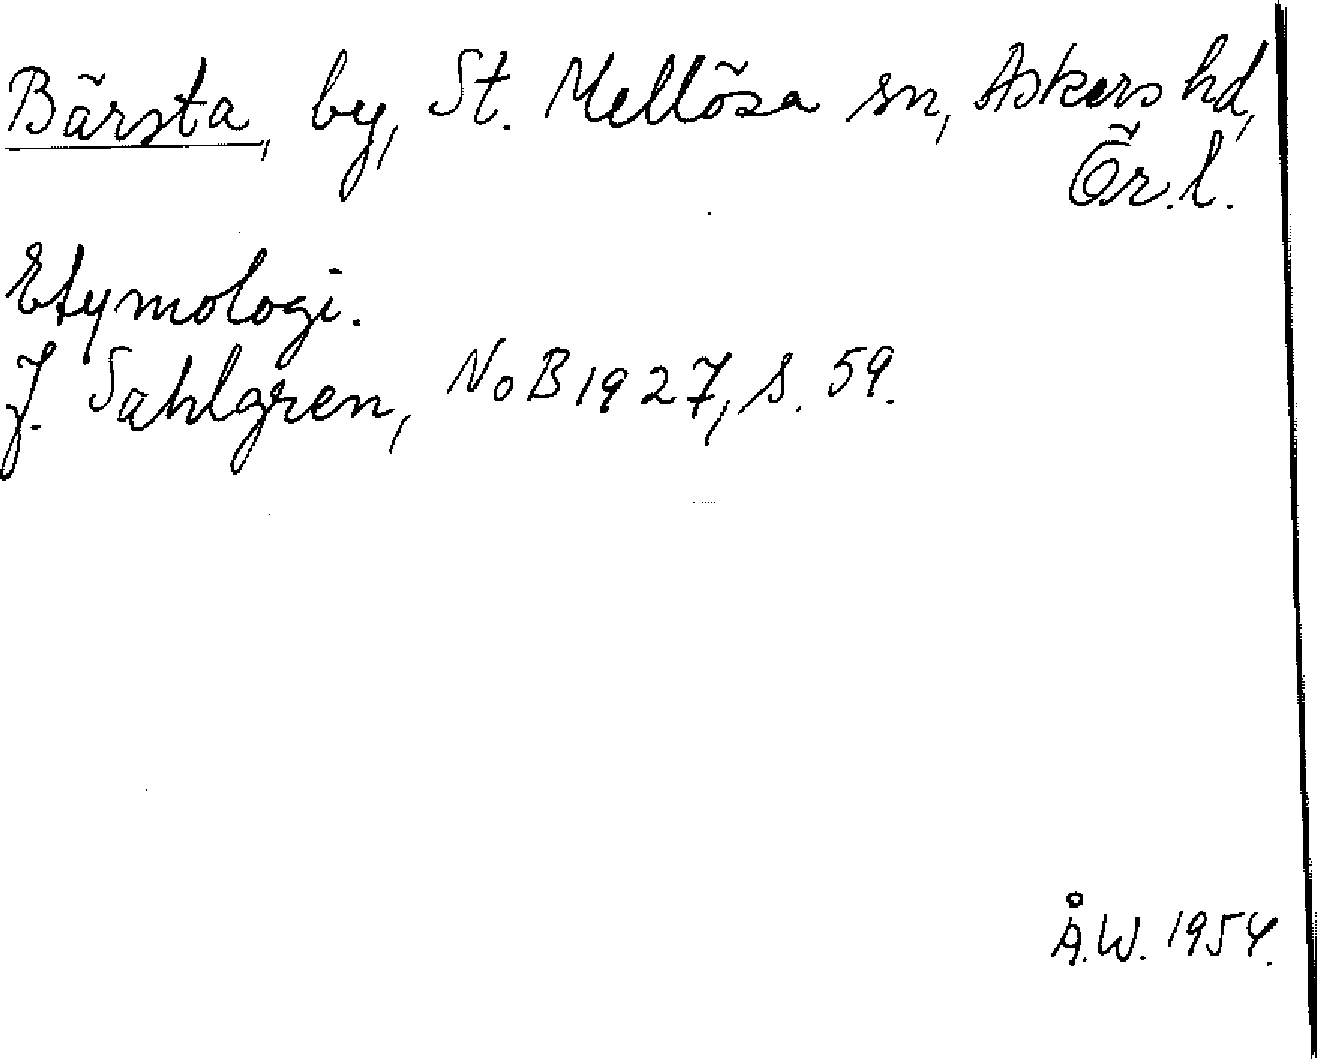 Bärsta, by, St. Mellösa sn, Askers hd,
Ör.l.
Etymologi.
J. Sahlgren, NoB 1927, s. 59.
Å.W. 1954.